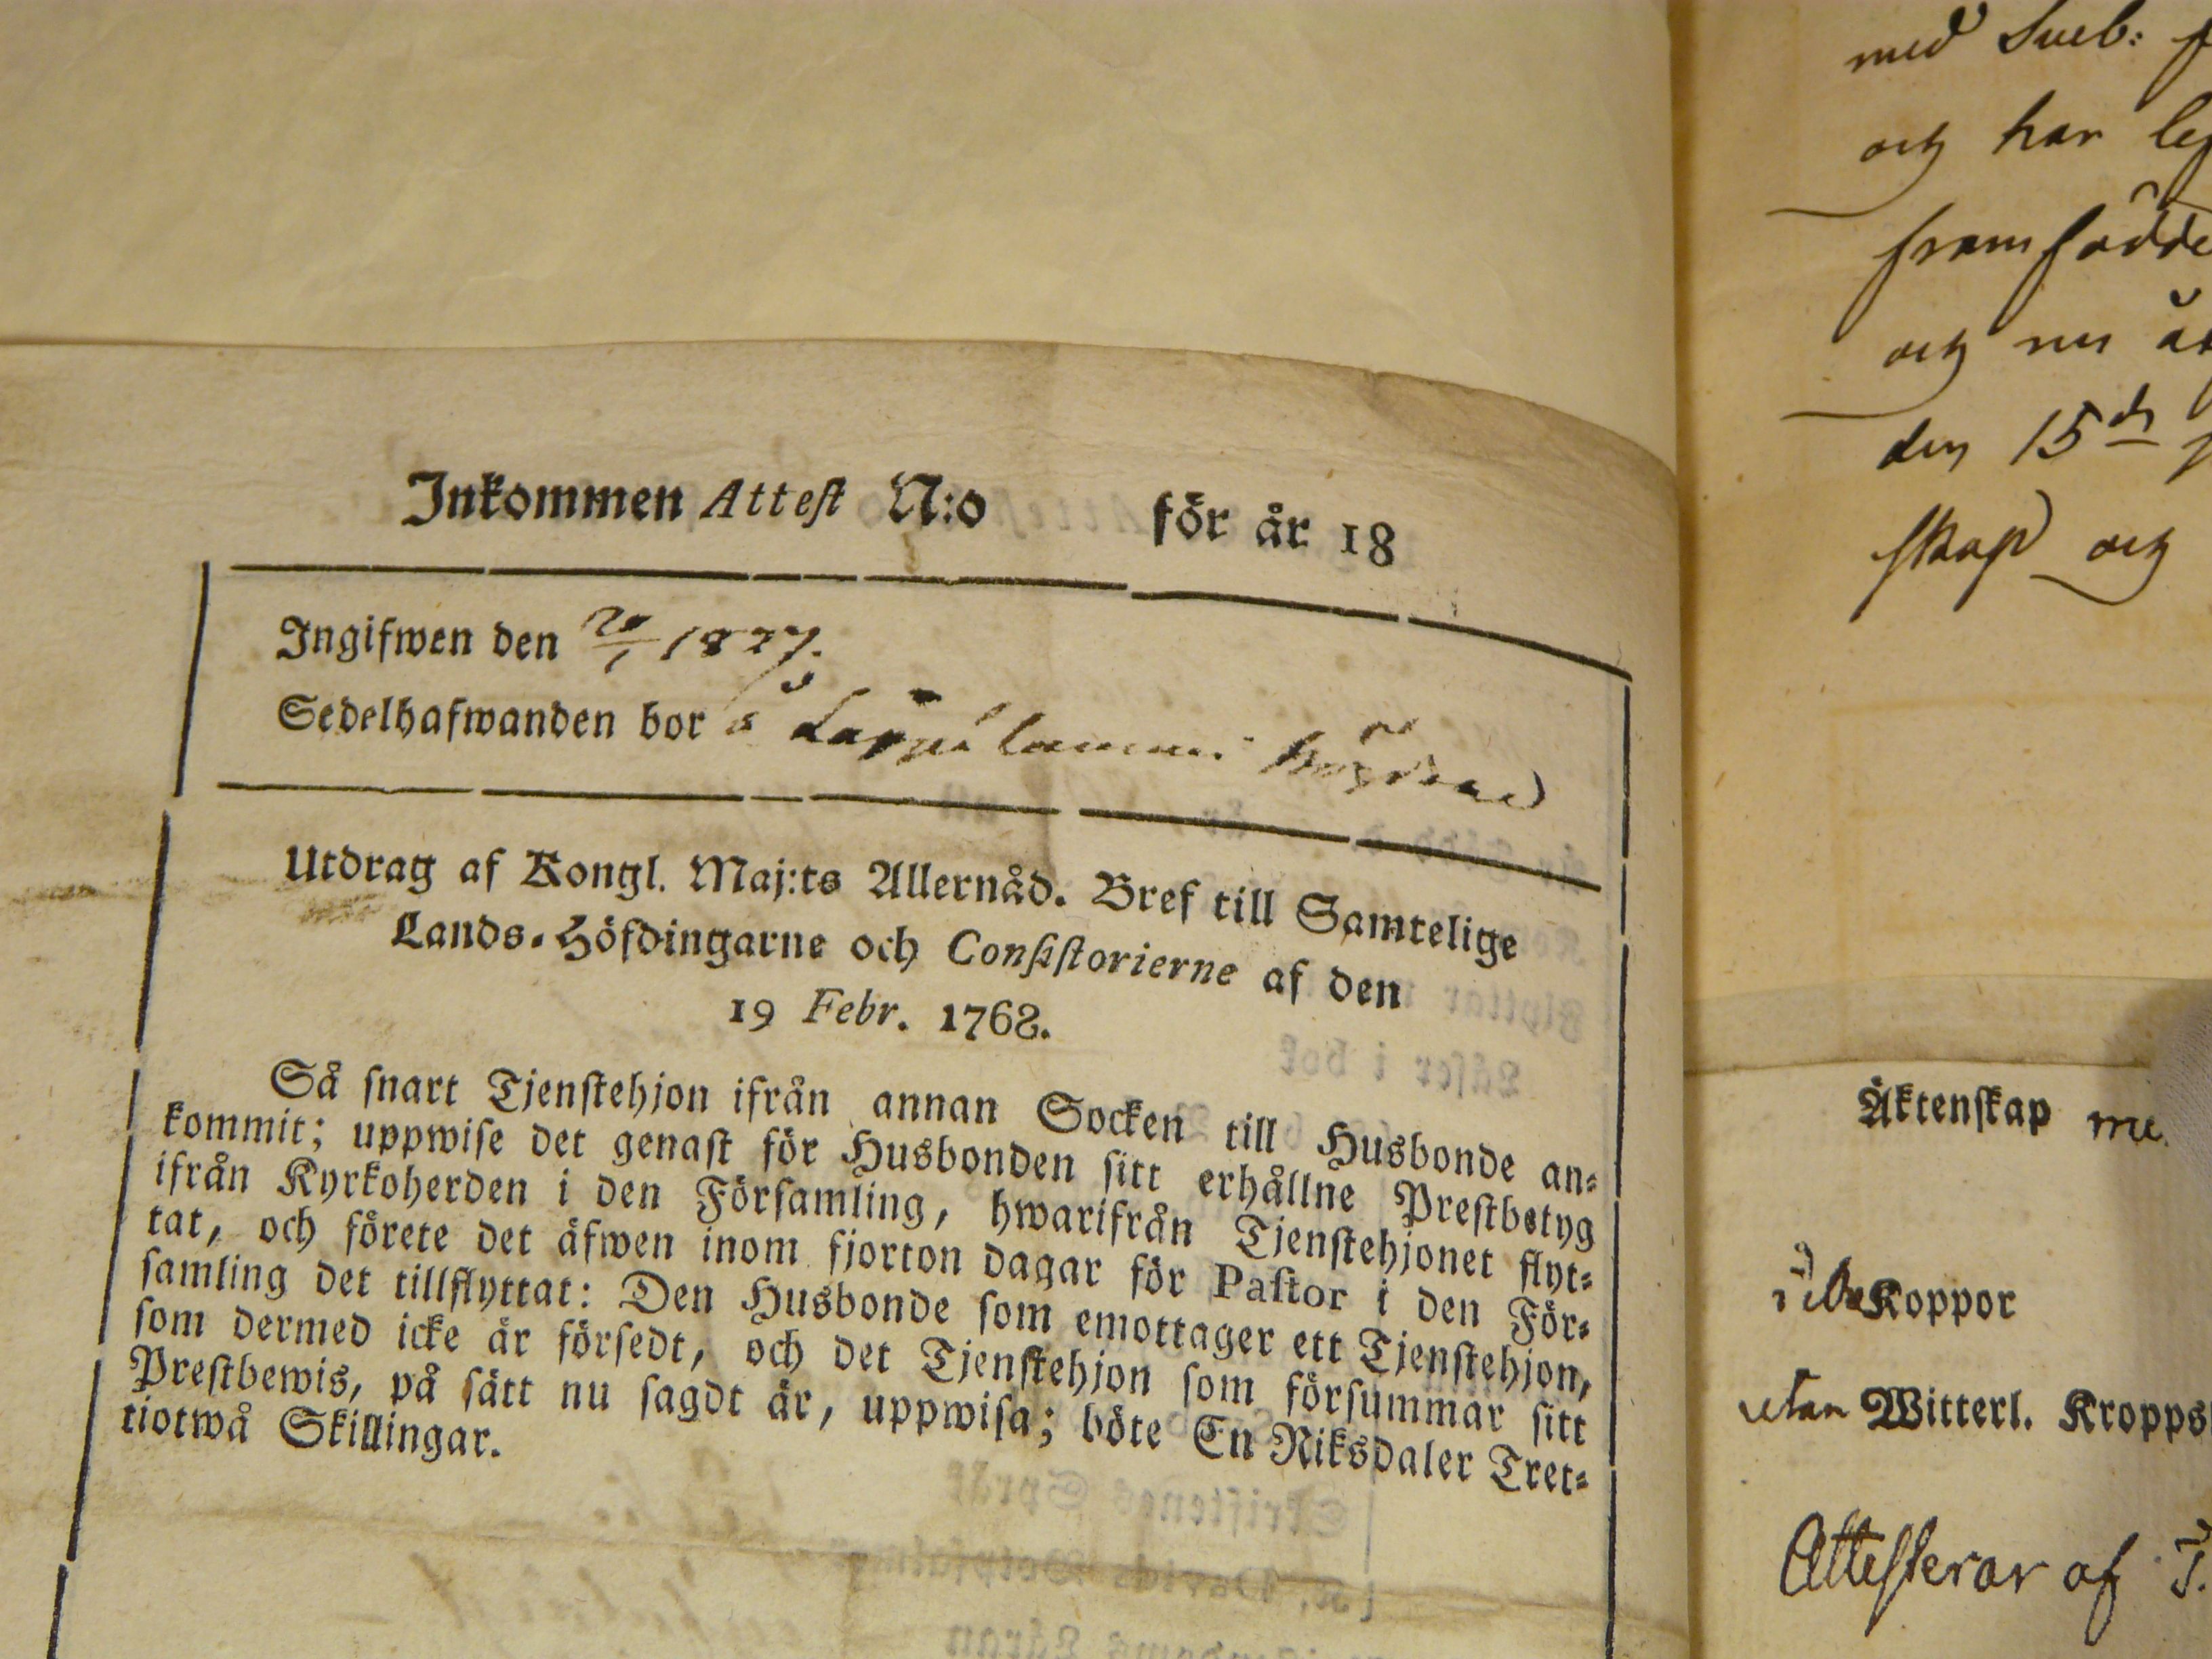 Inkommen Attest N:o för år 18
Ingifwen den 20/1 1827.
Sedelhafwanden bor å
Utdrag af Kongl. Maj:ts Allernåd. Bref till Samtelige
Lands-Höfdingarne och Consistorierne af den
19 Febr. 1768.
Så snart Tjenstehjon ifrån annan Socken till Husbonde an-
kommit; uppwise det genast för Husbonden sitt erhållne Prestbetyg
ifrån Kyrkoherden i den Församling, hwarifrån Tjenstehjonet flyt-
tat, och förete det äfwen inom fjorton dagar för Pastor i den För-
samling det tillflyttat: Den Husbonde som emottager ett Tjenstehjon,
som dermed icke är försedt, och det Tjenstehjon som försummar sitt
Prestbewis, på sätt nu sagdt är, uppwisa; böte En Riksdaler Tret-
tiotwå Skillingar.
med Sveb:
och har
framfödde
och nu
den 15de
skap och
Äktenskap
Koppor
utan Witterl. Kropps
Attesterar af